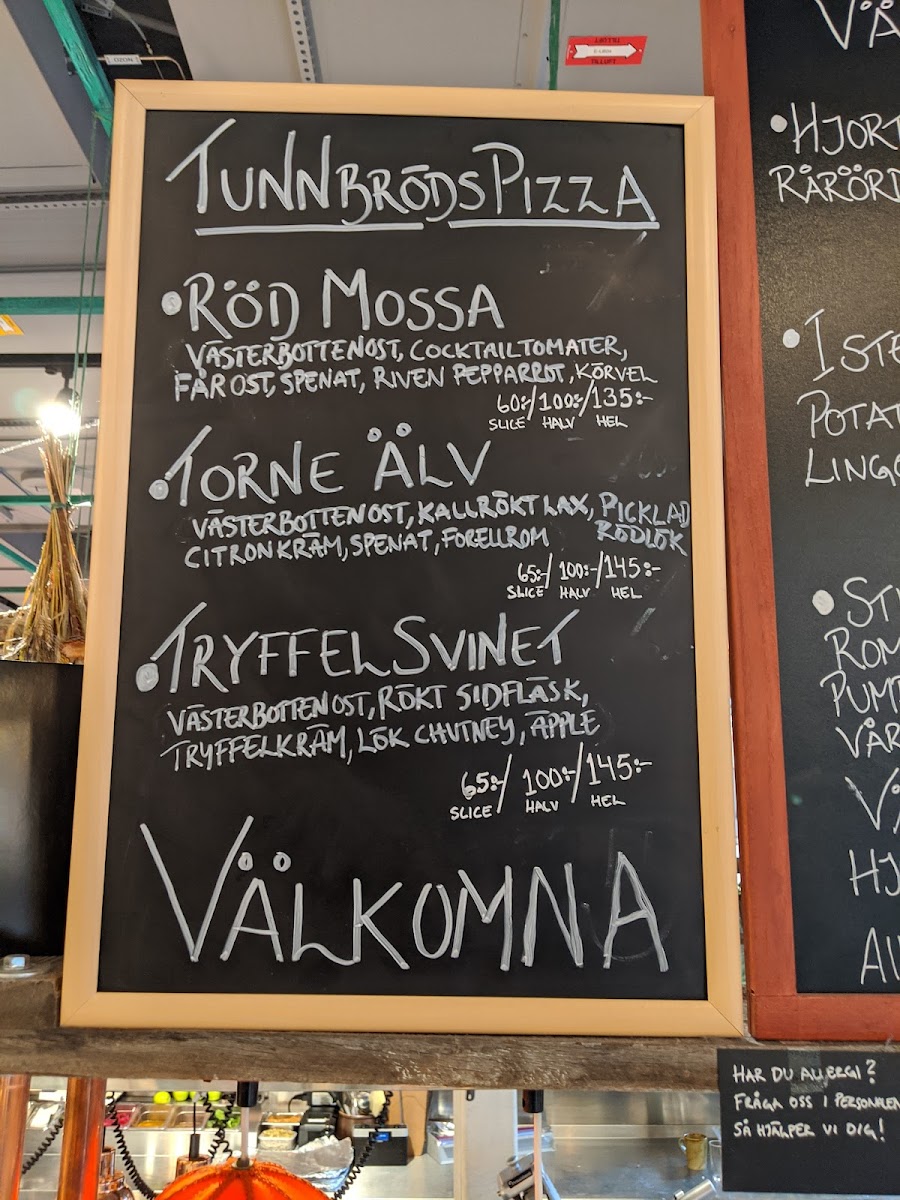 OZON
TILLUFT
TUNNBRÖDSPIZZA
• RÖD MOSSA
VÄSTERBOTTENOST, COCKTAILTOMATER,
FÅROST, SPENAT, RIVEN PEPPARROT, KÖRVEL
60:-/100:-/135:-
SLICE HALV HEL
• TORNE ÄLV
VÄSTERBOTTENOST, KALLRÖKT LAX, PICKLAD
RÖDLÖK
CITRONKRÄM, SPENAT, FORELLROM
65:-/100:-/145:-
SLICE HALV HEL
• TRYFFELSVINET
VÄSTERBOTTENOST, RÖKT SIDFLÄSK,
TRYFFELKRÄM, LÖK CHUTNEY, ÄPPLE
65:-/100:-/145:-
SLICE HALV HEL
VÄLKOMNA
VÄ
• HJORT
RÅRÖRD
• ISTE
POTAT
LINGO
• ST
ROM
PUMP
VÅR
HJ
HAR DU ALLERGI?
FRÅGA OSS I PERSONALEN
SÅ HJÄLPER VI DIG!